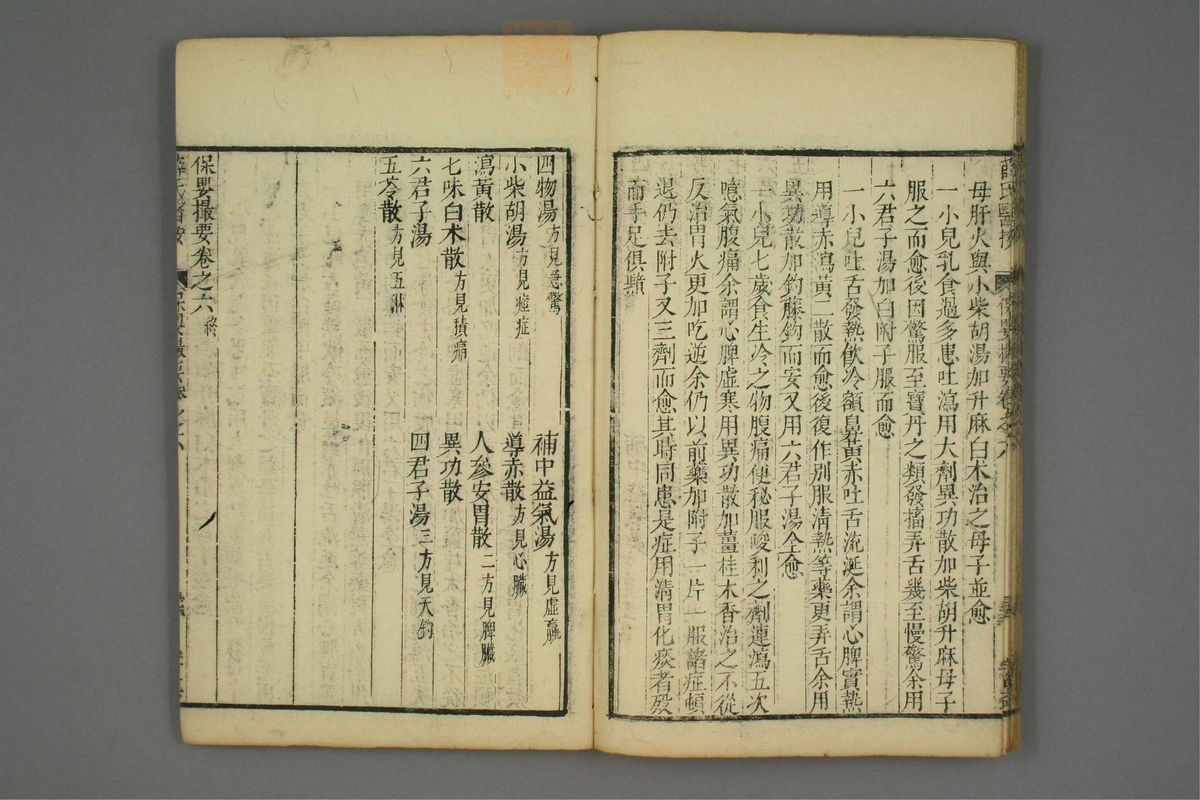 母肝火與小柴胡湯加升麻白术治之母子並愈
一小兒乳食過多患吐瀉用大劑異功散加柴胡升麻母子
服之而愈後因驚服至寶丹之類發搐弄舌幾至慢驚余用
六君子湯加白附子服而愈
一小兒吐舌發熱飲冷額鼻黃赤吐舌流涎余謂心脾實熱
用導赤瀉黃二散而愈後復作别服清熱等藥更弄舌余用
異功散加鈎藤鈎而安又用六君子湯全愈
一小兒七歲食生冷之物腹痛便秘服峻利之劑連瀉五次
噫氣腹痛余謂心脾虛寒用異功散加薑桂木香治之不從
反治胃火更加吃逆余仍以前藥加附子一片一服諸症頓
退仍去附子又三劑而愈其時同患是症用清胃化痰者歿
而手足俱黯
四物湯方見急驚
補中益氣湯方見虛羸
小柴胡湯方見痙症
導赤散方見心臟
瀉黃散
人參安胃散二方見脾臟
七味白术散方見積痛
異功散
六君子湯
四君子湯三方見天釣
五苓散方見五淋
保嬰撮要卷之六終